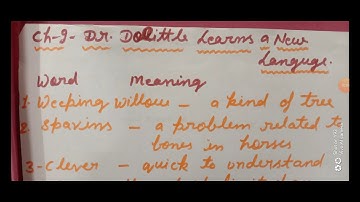 Ch-9- Dr. Dolittle Learns a New
Language.
Word Meaning
1. Weeping Willow - a kind of tree
2. Spavins - a problem related to
bones in horses
3- Clever - quick to understand